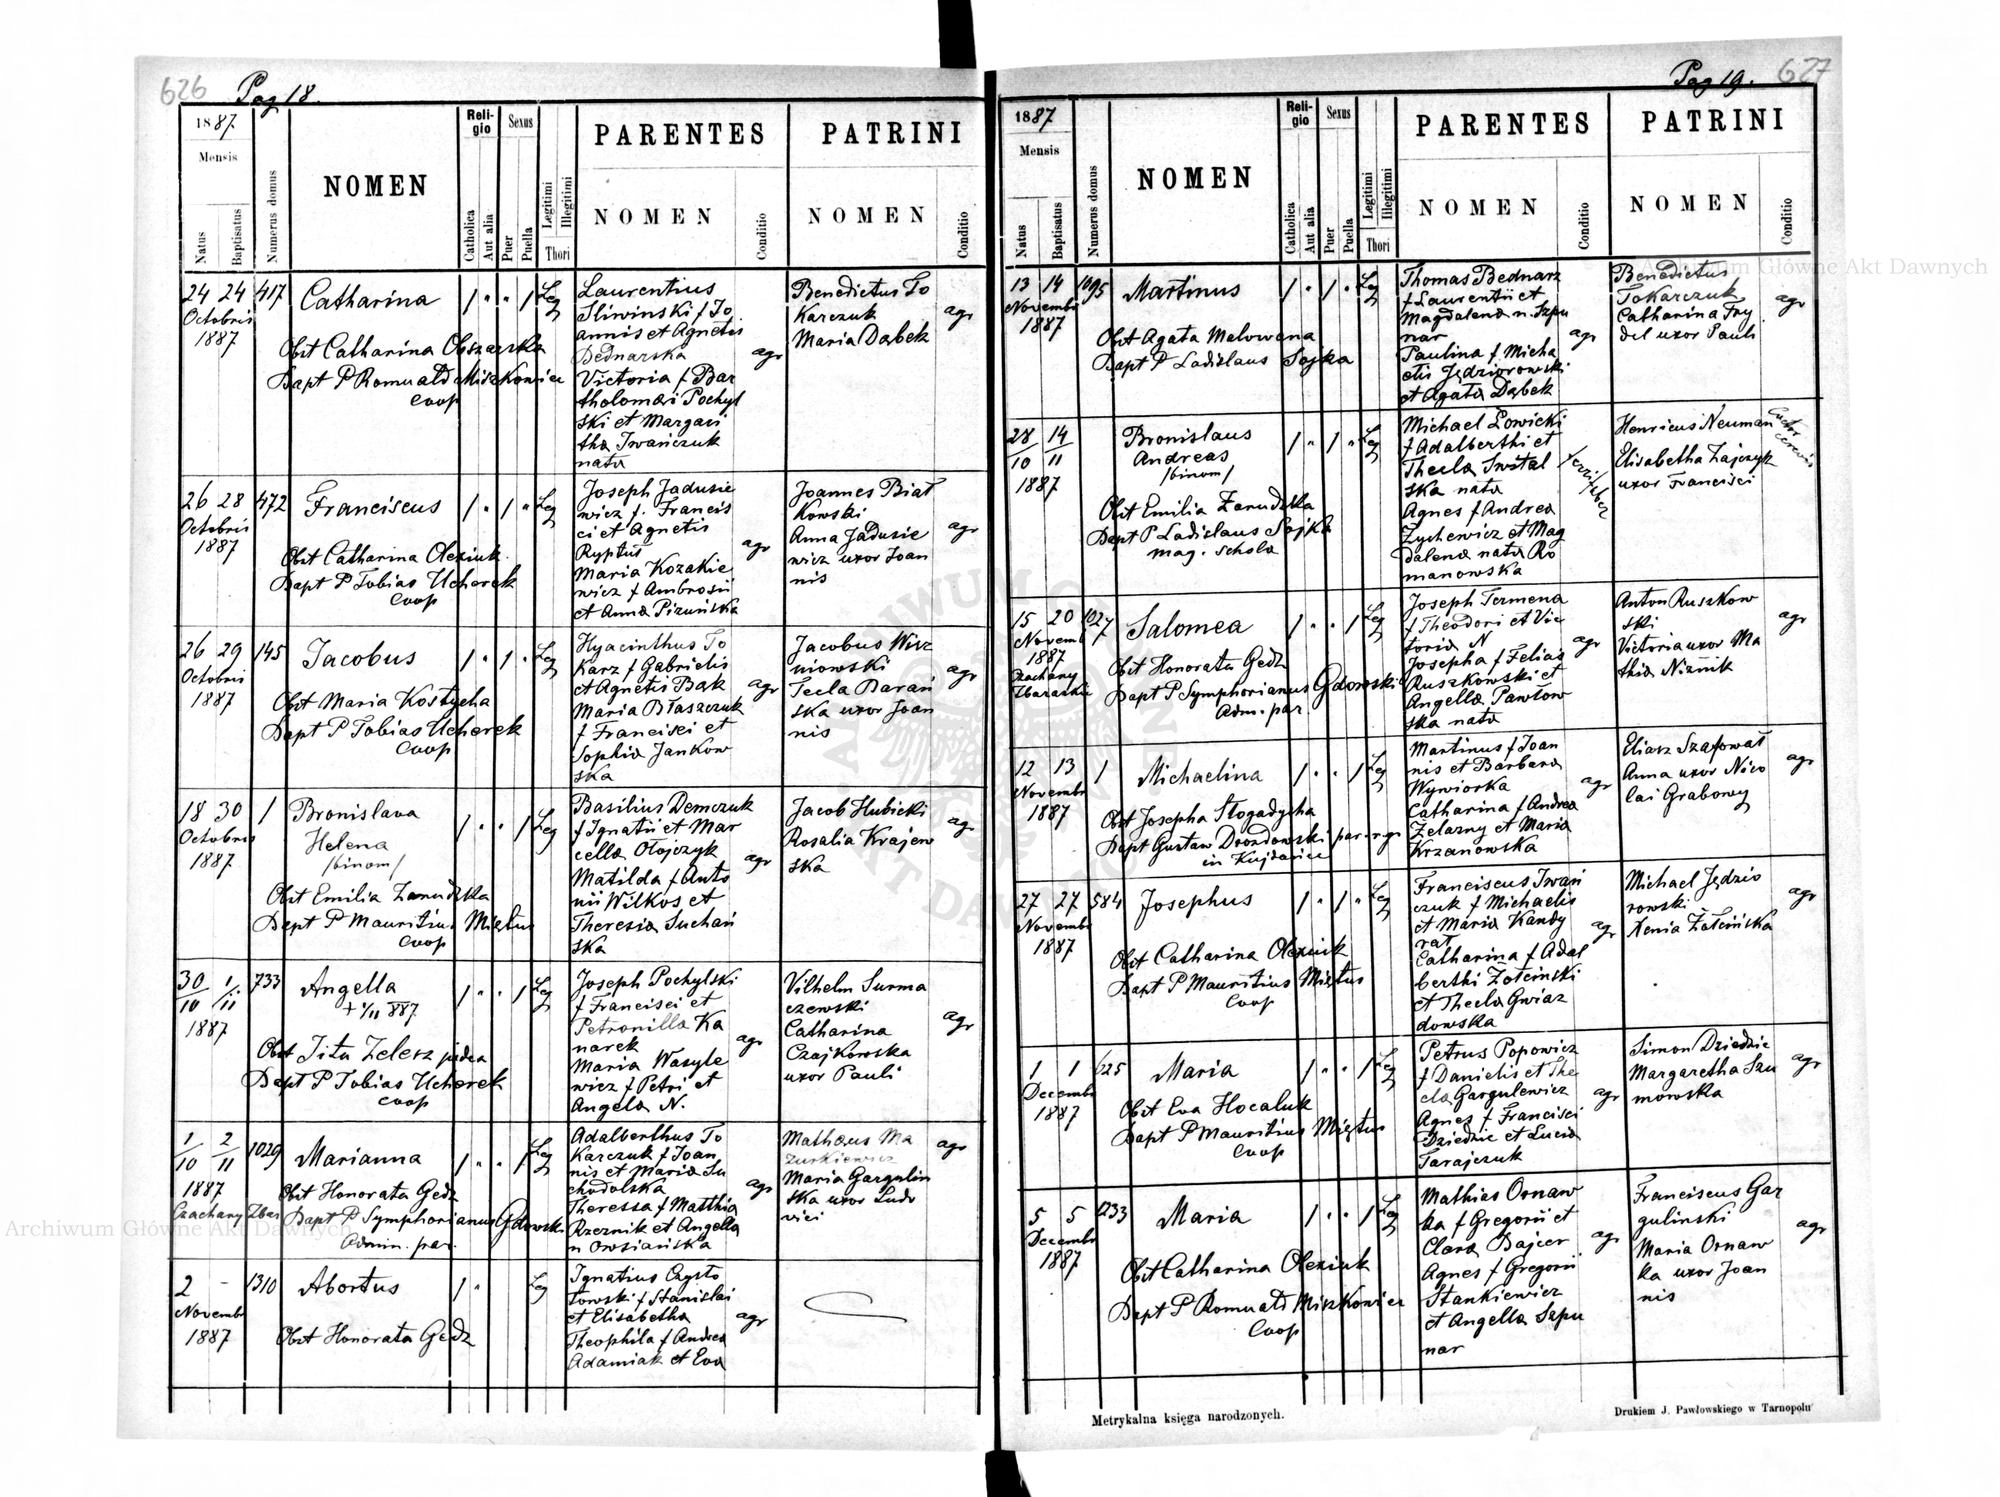 626
Pag 18.
1887.
Mensis
Natus
Baptisatus
Numerus domus
NOMEN
Religio
Catholica
Aut alia
Sexus
Puer
Puella
Legitimi
Illegitimi
Thori
PARENTES
NOMEN
Conditio
PATRINI
NOMEN
Conditio
24 24 417
Octobris
1887
Catharina
Obst Catharina Obszarska
Bapt P Romuald Miszkowicz
Coop
Leg
Laurentius
Sliwinski f Jo
annis et Agnetis
Bednarska
Victoria f Bar
tholomæi Pochyl
ski et Margari
tha Iwańczuk
nata
agr
Benedictus To
karczuk
Maria Dąbek
agr
26 28 472
Octobris
1887
Franciscus
Obst Catharina Olexiuk
Bapt P Tobias Ucherek
Coop
Leg
Joseph Jadusie
wicz f. Francis
ci et Agnetis
Maria Kozakie
wicz f Ambrosii
et Anna Pizuńska
agr
Joannes Biał
kowski
Anna Jadusie
wicz uxor Joan
nis
agr
26 29 145
Octobris
1887
Jacobus
Obst Maria Kostycha
Bapt P Tobias Ucherek
Coop
Leg
Hyacinthus To
karz f Gabrielis
et Agnetis Bak
Maria Błaszczuk
f Francisci et
Sophia Jankow
ska
agr
Jacobus Wisz
niowski
Tecla Barań
ska uxor Joan
nis
agr
18 30 1
Octobris
1887
Bronislava
Helena
/binom/
Obst Emilia Zarudzka
Bapt P Mauritius Miętus
Coop
Leg
Basilius Demczuk
f Ignatii et Mar
cella Olojczyk
Matilda f Anto
nii Wilkos et
Theresia Suchań
ska
agr
Jacob Hubicki
Rosalia Krajew
ska
agr
30/10 1/11 733
1887
Angella
+ 1/11 887
Obst Tita Zelesz
Bapt P Tobias Ucherek
Coop
Leg
Joseph Pochylski
f Francisci et
Petronilla Ka
narek
Maria Wasyle
wicz f Petri et
Angela N.
agr
Vilhelm Surma
czewski
Catharina
Czajkowska
uxor Pauli
agr
1/10 2/11 1029
1887
Czachary Zbar
Marianna
Obst Honorata Gedz
Bapt P Symphorianus Gdowski
Admin. par.
Leg
Adalberthus To
karczuk f Joan
nis et Maria Su
chodolska
Theressa f Matthia
Rzeznik et Angella
n Owsiańska
agr
Mathæus Ma
zurkiewicz
Maria Gargulin
ska uxor Ludo
vici
agr
2 – 1310
Novembr
1887
Abortus
Obst Honorata Gedz
Leg
Ignatius Czysto
łowski f Stanislai
et Elisabetha
Theophila f Andrea
Adamiak et Eva
agr
Pag 19.
627
1887
Mensis
Natus
Baptisatus
Numerus domus
NOMEN
Religio
Catholica
Aut alia
Sexus
Puer
Puella
Legitimi
Illegitimi
Thori
PARENTES
NOMEN
Conditio
PATRINI
NOMEN
Conditio
13 14 1095
Novembr
1887
Martinus
Obst Agata Malowana
Bapt P Ladislaus Sojka
Leg
Thomas Bednarz
f Laurentii et
Magdalena n. Szpu
nar
Paulina f. Micha
elis Jędziorowski
et Agata Dąbek
agr
Benedictus
Tokarczuk
Catharina Fry
del uxor Pauli
agr
28/10 14/11
1887
Bronislaus
Andreas
/binom/
Obst Emilia Zarudzka
Bapt P Ladislaus Sojka
mag. schola
Leg
Michael Łowicki
f Adalberthi et
Thecla Switał
ska nata
Agnes f Andrea
Zychewicz et Mag
dalena nata Ro
manowska
Henricus Neuman
Elisabetha Zajczyk
uxor Francisci
15 20 1027
Novemb
1887
Czachary
Zbarazkie
Salomea
Obst Honorata Gedz
Bapt P Symphorianus Gdowski
Adm. par.
Leg
Joseph Termena
f Theodori et Vic
toria N
Josepha f Felias
Ruszkowski et
Angella Pawłow
ska nata
agr
Anton Ruszkow
ski
Victoria uxor Ma
thia Niznik
agr
12 13 1
Novembr
1887
Michaelina
Obst Josepha Stogadycha
Bapt Gustaw Drozdowski par. r. gr
in Kujdańce
Leg
Martinus f Joan
nis et Barbara
Wywiorka
Catharina f Andrea
Zelazny et Maria
Krzanowska
agr
Eliasz Szafował
Anna uxor Nico
lai Grabowy
agr
27 27 584
Novembr
1887
Josephus
Obst Catharina Olexiuk
Bapt P Mauritius Miętus
Coop
Leg
Franciscus Iwań
czuk f Michaelis
et Maria Kandy
rał
Catharina f Adal
berthi Żołciński
et Thecla Gwiaz
dowska
agr
Michael Jędzio
rowski
Xenia Żółcińska
agr
1 1 1225
Decembr
1887
Maria
Obst Eva Hocaluk
Bapt P Mauritius Miętus
Coop
Leg
Petrus Popowicz
f Danielis et The
cla Gargulewicz
Agnes f. Francisci
Dziedzic et Lucia
Tarajczuk
agr
Simon Dziedzic
Margaretha Szu
mowska
agr
5 5 1233
Decembr
1887
Maria
Obst Catharina Olexiuk
Bapt P Romuald Miszkowicz
Coop
Leg
Mathias Ornaw
ka f Gregorii et
Clara Bajcer
Agnes f Gregorii
Stankiewicz
et Angella Szpu
nar
agr
Franciscus Gar
gulinski
Maria Ornaw
ka uxor Joan
nis
agr
Metrykalna księga narodzonych.
Drukiem J. Pawłowskiego w Tarnopolu
Archiwum Główne Akt Dawnych
Archiwum Główne Akt Dawnych